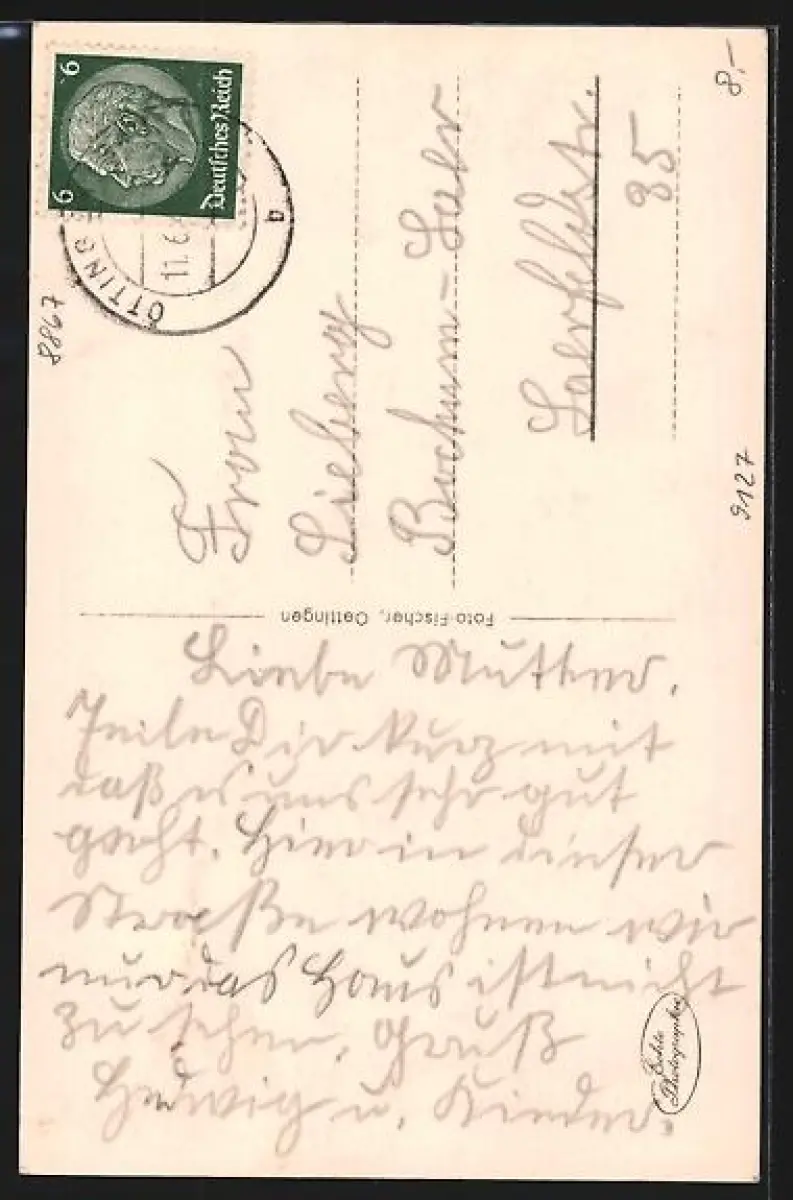 Liebe Mutter.
Teile Dir kurz mit
daß es uns sehr gut
geht. Hier in dieser
Straße wohnen wir
nur das Haus ist nicht
zu sehen. Gruß
Hedwig u. Kinder.
Foto-Fischer, Oettingen
Frau
Lieberg
Bochum-Laer
Laerfeldstr.
85
6 6
Deutsches Reich
ÖTTING
11.6
b
8867
8,-
9127
Echte
Photographie